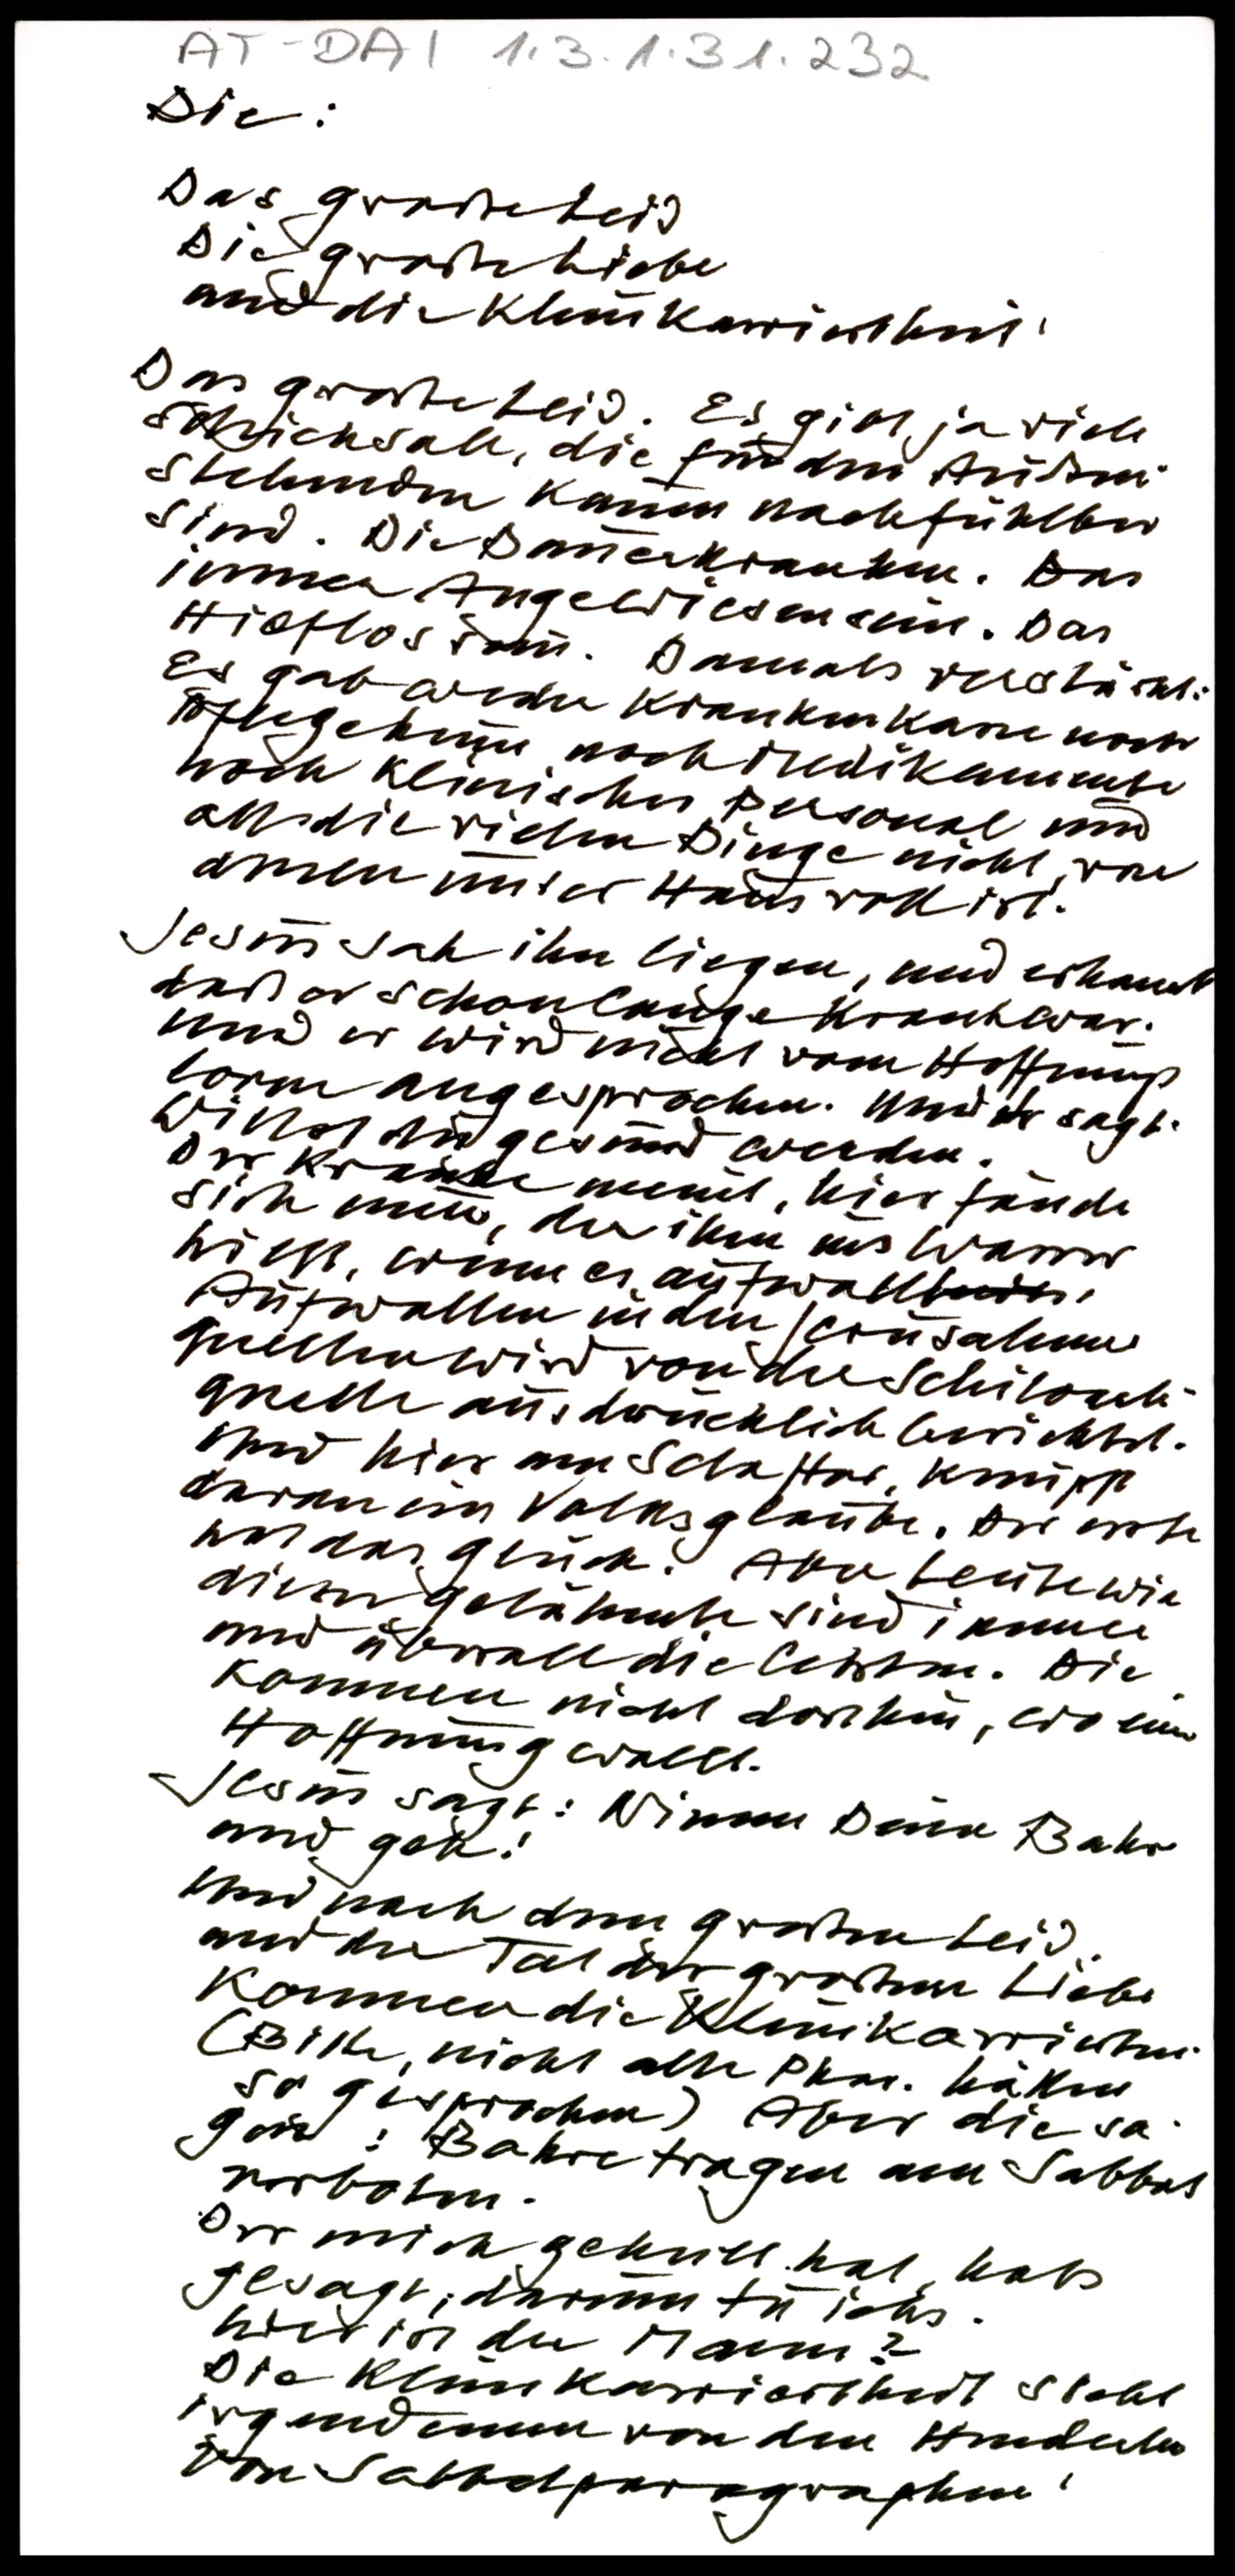 AT-DAI 1.3.1.31.232
Die:
Das große Leid
Die große Liebe
und die Kleinkariertheit!
Das große Leid. Es gibt ja viele
Schicksale, die für den Außen-
stehenden kaum nachfühlbar
sind. Die Dauerkranken. Das
immer Angewiesensein. Das
Hilflossein. Damals verstärkt:
Es gab weder Krankenkasse noch
Pflegeheim noch Medikamente
noch klinisches Personal und
all die vielen Dinge nicht, von
denen unser Haus voll ist.
Jesus sah ihn liegen, und erkannt
daß er schon lange krank war.
Und er wird nicht vom Hoffnungs
losen angesprochen. Und er sagt.
Willst du gesund werden.
Der Kranke meint, hier fände
sich niem, der ihm ins Wasser
hilft, wenn es aufwallt.
Aufwallen in den Jerusalemer
Quellen wird von der Schiloach-
quelle ausdrücklich berichtet.
Und hier am Schaftor, knüpft
daran ein Volksglaube. Der erste
hat das Glück. Aber Leute wie
dieser Gelähmte sind immer
und überall die letzten. Die
kommen nicht dorthin, wo eine
Hoffnung wallt.
Jesus sagt: Nimm Deine Bahre
und geh!
Und nach dem großen Leid
und der Tat der großen Liebe
kommen die Kleinkarierten.
(Bitte, nicht alle Phar. hätten
so gesprochen) Aber die sa-
gen: Bahre tragen am Sabbat
verboten.
Der mich geheilt hat, hats
gesagt, darum tu ichs.
Wer ist der Mann?
Die Kleinkariertheit steht
irgendeinem von den Hunderten
von Sabbatparagraphen!